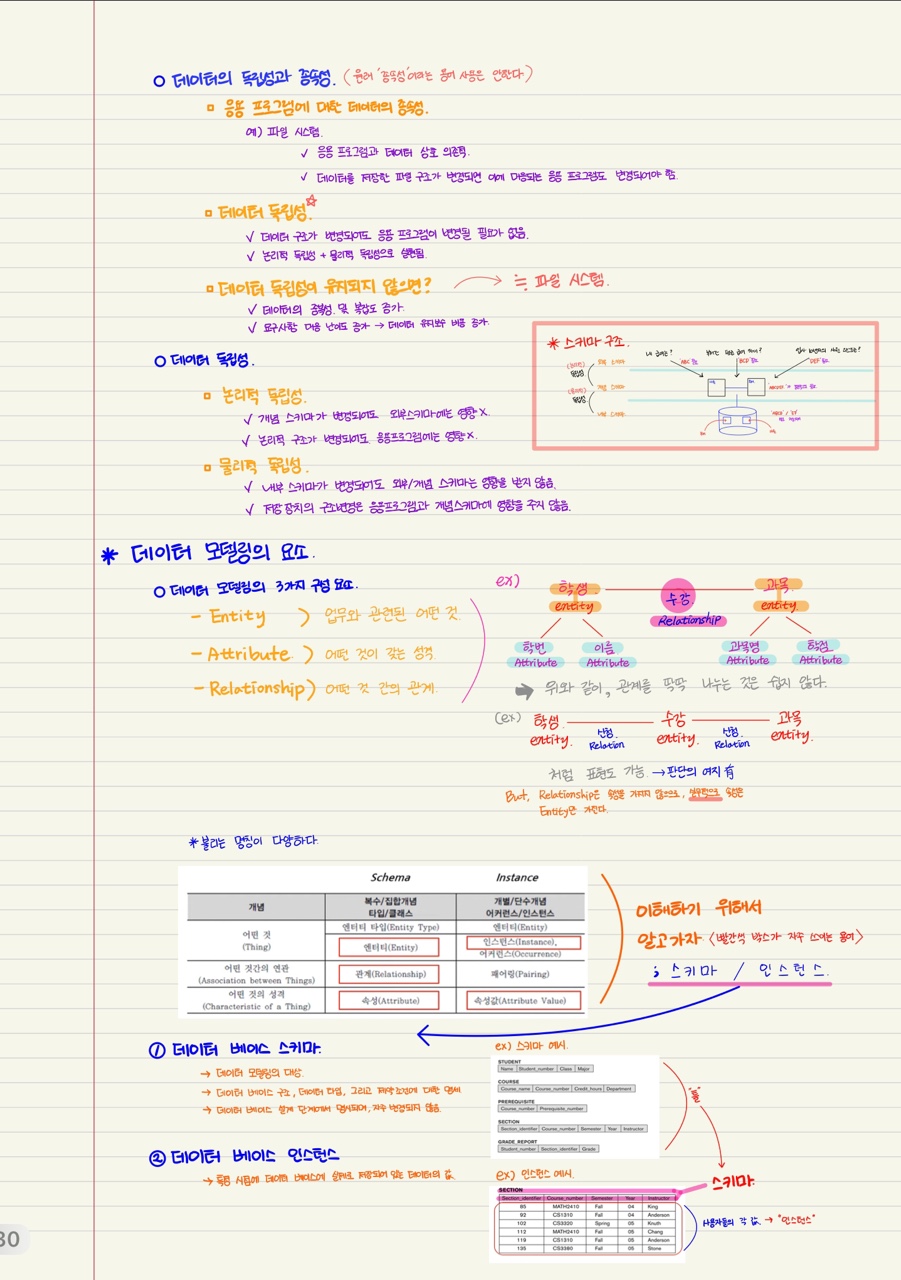 ○ 데이터의 독립성과 종속성. (원래 '종속성'이라는 용어 사용은 안한다)
▫ 응용 프로그램에 대한 데이터의 종속성.
예) 파일 시스템.
✓ 응용 프로그램과 데이터 상호 의존적.
✓ 데이터를 저장한 파일 구조가 변경되면 이에 대응되는 응용 프로그램도 변경되어야 함.
▫ 데이터 독립성.☆
✓ 데이터 구조가 변경되어도 응용 프로그램이 변경될 필요가 없음.
✓ 논리적 독립성 + 물리적 독립성으로 실현됨.
▫ 데이터 독립성이 유지되지 않으면? → ≒ 파일 시스템.
✓ 데이터의 중복성 및 복잡도 증가.
✓ 요구사항 대응 난이도 증가 → 데이터 유지보수 비용 증가.
* 스키마 구조.
내 급여는?
'ABC' 필요
'BCD' 필요
'DEF' 필요
(논리적) 독립성
외부 스키마
개념 스키마
(물리적) 독립성
내부 스키마
○ 데이터 독립성.
▫ 논리적 독립성.
✓ 개념 스키마가 변경되어도 외부스키마에는 영향 X.
✓ 논리적 구조가 변경되어도 응용프로그램에는 영향 X.
▫ 물리적 독립성.
✓ 내부 스키마가 변경되어도 외부/개념 스키마는 영향을 받지 않음.
✓ 저장 장치의 구조변경은 응용프로그램과 개념스키마에 영향을 주지 않음.
* 데이터 모델링의 요소.
○ 데이터 모델링의 3가지 구성 요소.
- Entity ) 업무와 관련된 어떤 것.
- Attribute. ) 어떤 것이 갖는 성격.
- Relationship ) 어떤 것 간의 관계.
ex)
학생 수강 과목
entity Relationship entity
학번 이름 과목명 학점
Attribute Attribute Attribute Attribute
➡ 위와 같이, 관계를 딱딱 나누는 것은 쉽지 않다.
(ex) 학생 수강 과목
entity. 신청 Relation entity. 신청 Relation entity.
처럼 표현도 가능. → 판단의 여지 有
But, Relationship은 속성을 가지지 않으므로, 일반적으로 속성은
Entity만 가진다.
* 불리는 명칭이 다양하다.
Schema Instance
개념 복수/집합개념 타입/클래스 개별/단수개념 어커런스/인스턴스
어떤 것 (Thing) 엔터티 타입(Entity Type) 엔터티(Entity)
엔터티(Entity) 인스턴스(Instance), 어커런스(Occurrence)
어떤 것간의 연관 (Association between Things) 관계(Relationship) 패어링(Pairing)
어떤 것의 성격 (Characteristic of a Thing) 속성(Attribute) 속성값(Attribute Value)
이해하기 위해서
알고가자 〈빨간색 박스가 자주 쓰이는 용어〉
; 스키마 / 인스턴스.
① 데이터 베이스 스키마.
→ 데이터 모델링의 대상.
→ 데이터 베이스 구조, 데이터 타입, 그리고 제약조건에 대한 명세
→ 데이터 베이스 설계 단계에서 명시되며, 자주 변경되지 않음.
ex) 스키마 예시.
STUDENT
Name Student_number Class Major
COURSE
Course_name Course_number Credit_hours Department
PREREQUISITE
Course_number Prerequisite_number
SECTION
Section_identifier Course_number Semester Year Instructor
GRADE_REPORT
Student_number Section_identifier Grade
② 데이터 베이스 인스턴스
→ 특정 시점에 데이터 베이스에 실제로 저장되어 있는 데이터의 값.
ex) 인스턴스 예시.
스키마.
SECTION
Section_identifier Course_number Semester Year Instructor
85 MATH2410 Fall 04 King
92 CS1310 Fall 04 Anderson
102 CS3320 Spring 05 Knuth
112 MATH2410 Fall 05 Chang
119 CS1310 Fall 05 Anderson
135 CS3380 Fall 05 Stone
각 값. → "인스턴스"
30